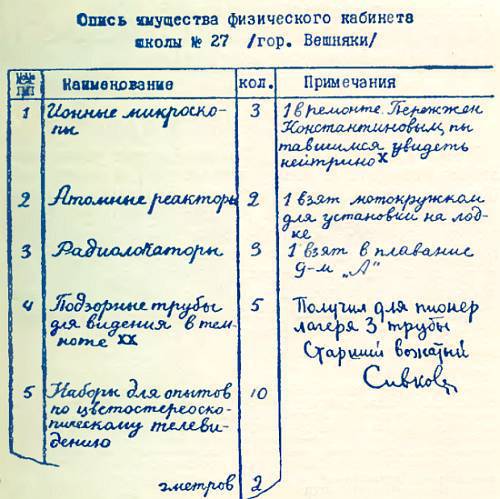 Опись имущества физического кабинета
школы № 27 /гор. Вешняки/
№№ Наименование кол. Примечания
пп
1 Ионные микроско- 3 1 в ремонте. Пережжен
пы Константиновым, пы
тавшимся увидеть
нейтрино x
2 Атомные реакторы 2 1 взят мотокружком
для установки на лод-
ке
3 Радиолокаторы 3 1 взят в плавание
9-м „А"
4 Подзорные трубы 5 Получил для пионер
для видения в тем- лагеря 3 трубы
ноте xx Старший вожатый
Сивков
5 Наборы для опытов 10
по цветостереоско-
пическому телеви-
дению
2